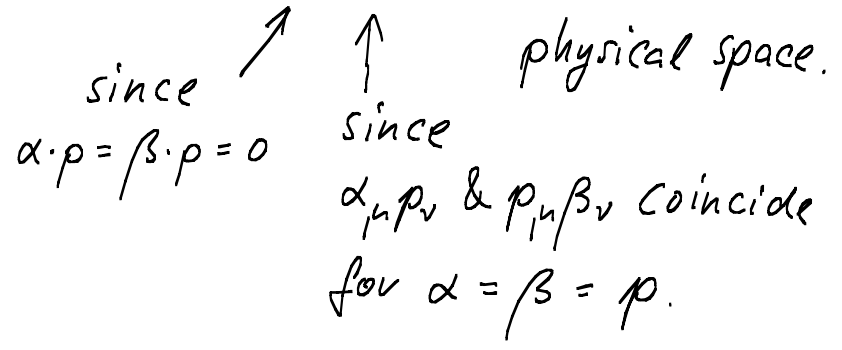 physical space.
since
α·p = β·p = 0
since
α_μ p_ν & p_μ β_ν coincide
for α = β = p.